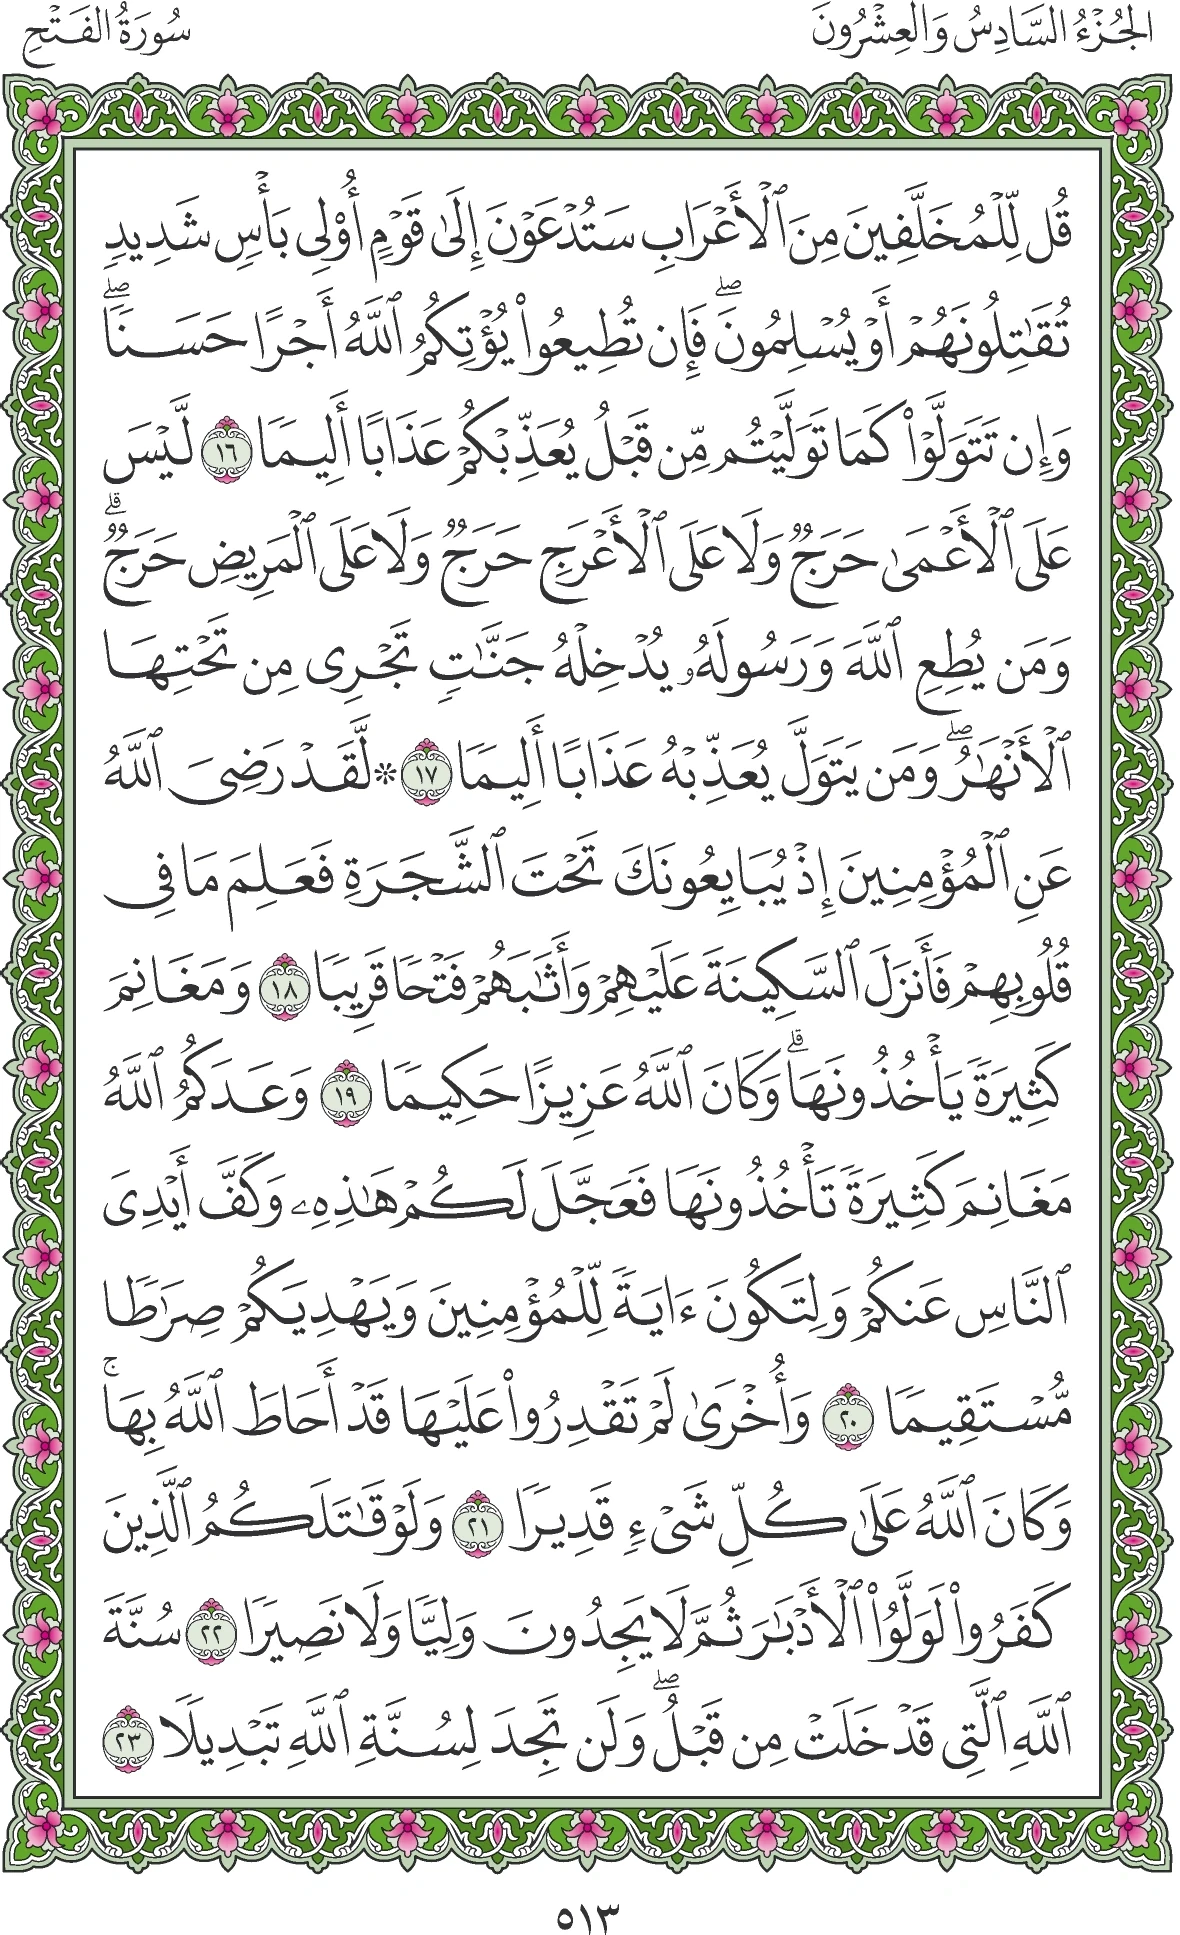 الجُزْءُ السَّادِسُ وَالعِشْرُونَ
سُورَةُ الفَتْحِ
قُل لِّلْمُخَلَّفِينَ مِنَ ٱلْأَعْرَابِ سَتُدْعَوْنَ إِلَىٰ قَوْمٍ أُوْلِى بَأْسٍ شَدِيدٍ
تُقَٰتِلُونَهُمْ أَوْ يُسْلِمُونَۖ فَإِن تُطِيعُوا۟ يُؤْتِكُمُ ٱللَّهُ أَجْرًا حَسَنًاۖ
وَإِن تَتَوَلَّوْا۟ كَمَا تَوَلَّيْتُم مِّن قَبْلُ يُعَذِّبْكُمْ عَذَابًا أَلِيمًا ١٦ لَّيْسَ
عَلَى ٱلْأَعْمَىٰ حَرَجٌ وَلَا عَلَى ٱلْأَعْرَجِ حَرَجٌ وَلَا عَلَى ٱلْمَرِيضِ حَرَجٌۗ
وَمَن يُطِعِ ٱللَّهَ وَرَسُولَهُۥ يُدْخِلْهُ جَنَّٰتٍ تَجْرِى مِن تَحْتِهَا
ٱلْأَنْهَٰرُۖ وَمَن يَتَوَلَّ يُعَذِّبْهُ عَذَابًا أَلِيمًا ١٧ * لَّقَدْ رَضِىَ ٱللَّهُ
عَنِ ٱلْمُؤْمِنِينَ إِذْ يُبَايِعُونَكَ تَحْتَ ٱلشَّجَرَةِ فَعَلِمَ مَا فِى
قُلُوبِهِمْ فَأَنزَلَ ٱلسَّكِينَةَ عَلَيْهِمْ وَأَثَٰبَهُمْ فَتْحًا قَرِيبًا ١٨ وَمَغَانِمَ
كَثِيرَةً يَأْخُذُونَهَاۗ وَكَانَ ٱللَّهُ عَزِيزًا حَكِيمًا ١٩ وَعَدَكُمُ ٱللَّهُ
مَغَانِمَ كَثِيرَةً تَأْخُذُونَهَا فَعَجَّلَ لَكُمْ هَٰذِهِۦ وَكَفَّ أَيْدِىَ
ٱلنَّاسِ عَنكُمْ وَلِتَكُونَ ءَايَةً لِّلْمُؤْمِنِينَ وَيَهْدِيَكُمْ صِرَٰطًا
مُّسْتَقِيمًا ٢٠ وَأُخْرَىٰ لَمْ تَقْدِرُوا۟ عَلَيْهَا قَدْ أَحَاطَ ٱللَّهُ بِهَاۚ
وَكَانَ ٱللَّهُ عَلَىٰ كُلِّ شَىْءٍ قَدِيرًا ٢١ وَلَوْ قَٰتَلَكُمُ ٱلَّذِينَ
كَفَرُوا۟ لَوَلَّوُا۟ ٱلْأَدْبَٰرَ ثُمَّ لَا يَجِدُونَ وَلِيًّا وَلَا نَصِيرًا ٢٢ سُنَّةَ
ٱللَّهِ ٱلَّتِى قَدْ خَلَتْ مِن قَبْلُۖ وَلَن تَجِدَ لِسُنَّةِ ٱللَّهِ تَبْدِيلًا ٢٣
٥١٣